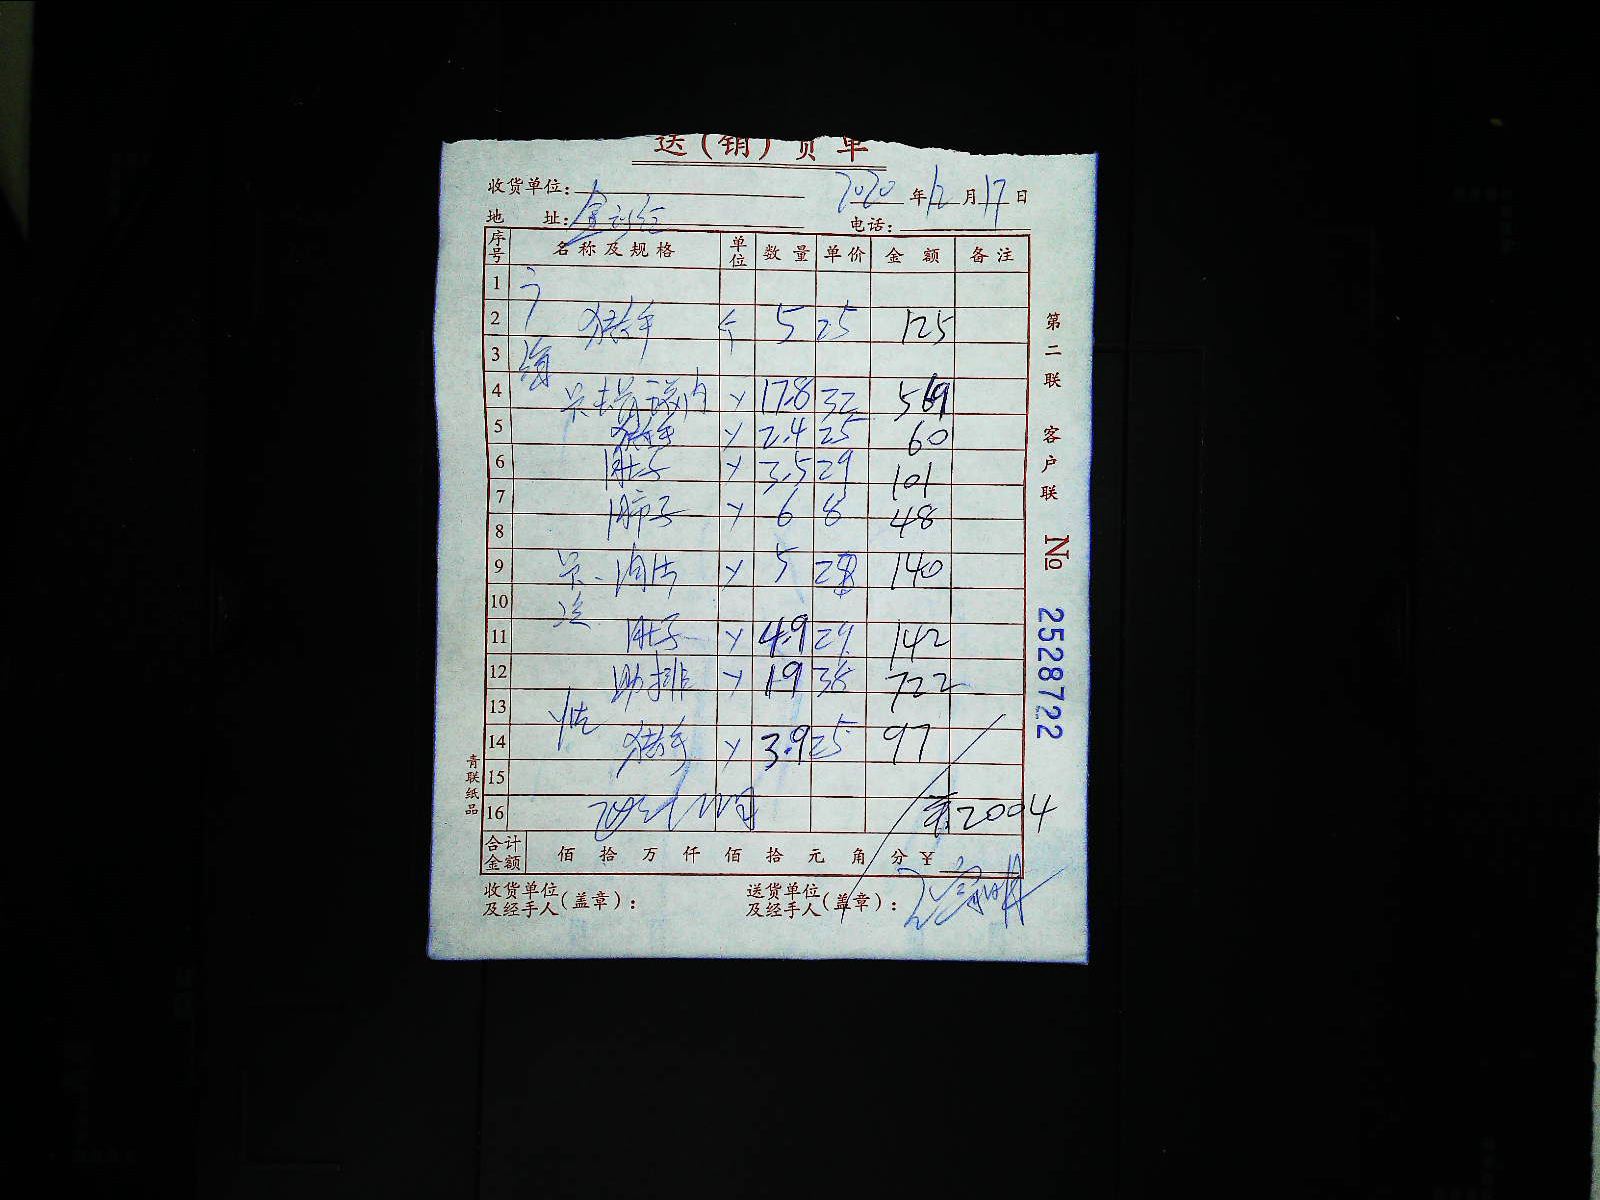 送(销)货单
收货单位: 2020年12月17日
地 址: 电话:
序号 名称及规格 单位 数量 单价 金额 备注
1
2 猪手 个 5 25 125
3
4 17.8 32 569
5 猪手 2.4 25 60
6 肚子 3.5 29 101
7 肺子 6 8 48
8
9 5 28 140
10
11 肚子 4.9 29 142
12 助排 19 38 722
13
14 猪手 3.9 25 97
15
16 2004
合计金额 佰 拾 万 仟 佰 拾 元 角 分 ¥
收货单位及经手人(盖章): 送货单位及经手人(盖章):
第二联 客户联 № 2528722
青联纸品